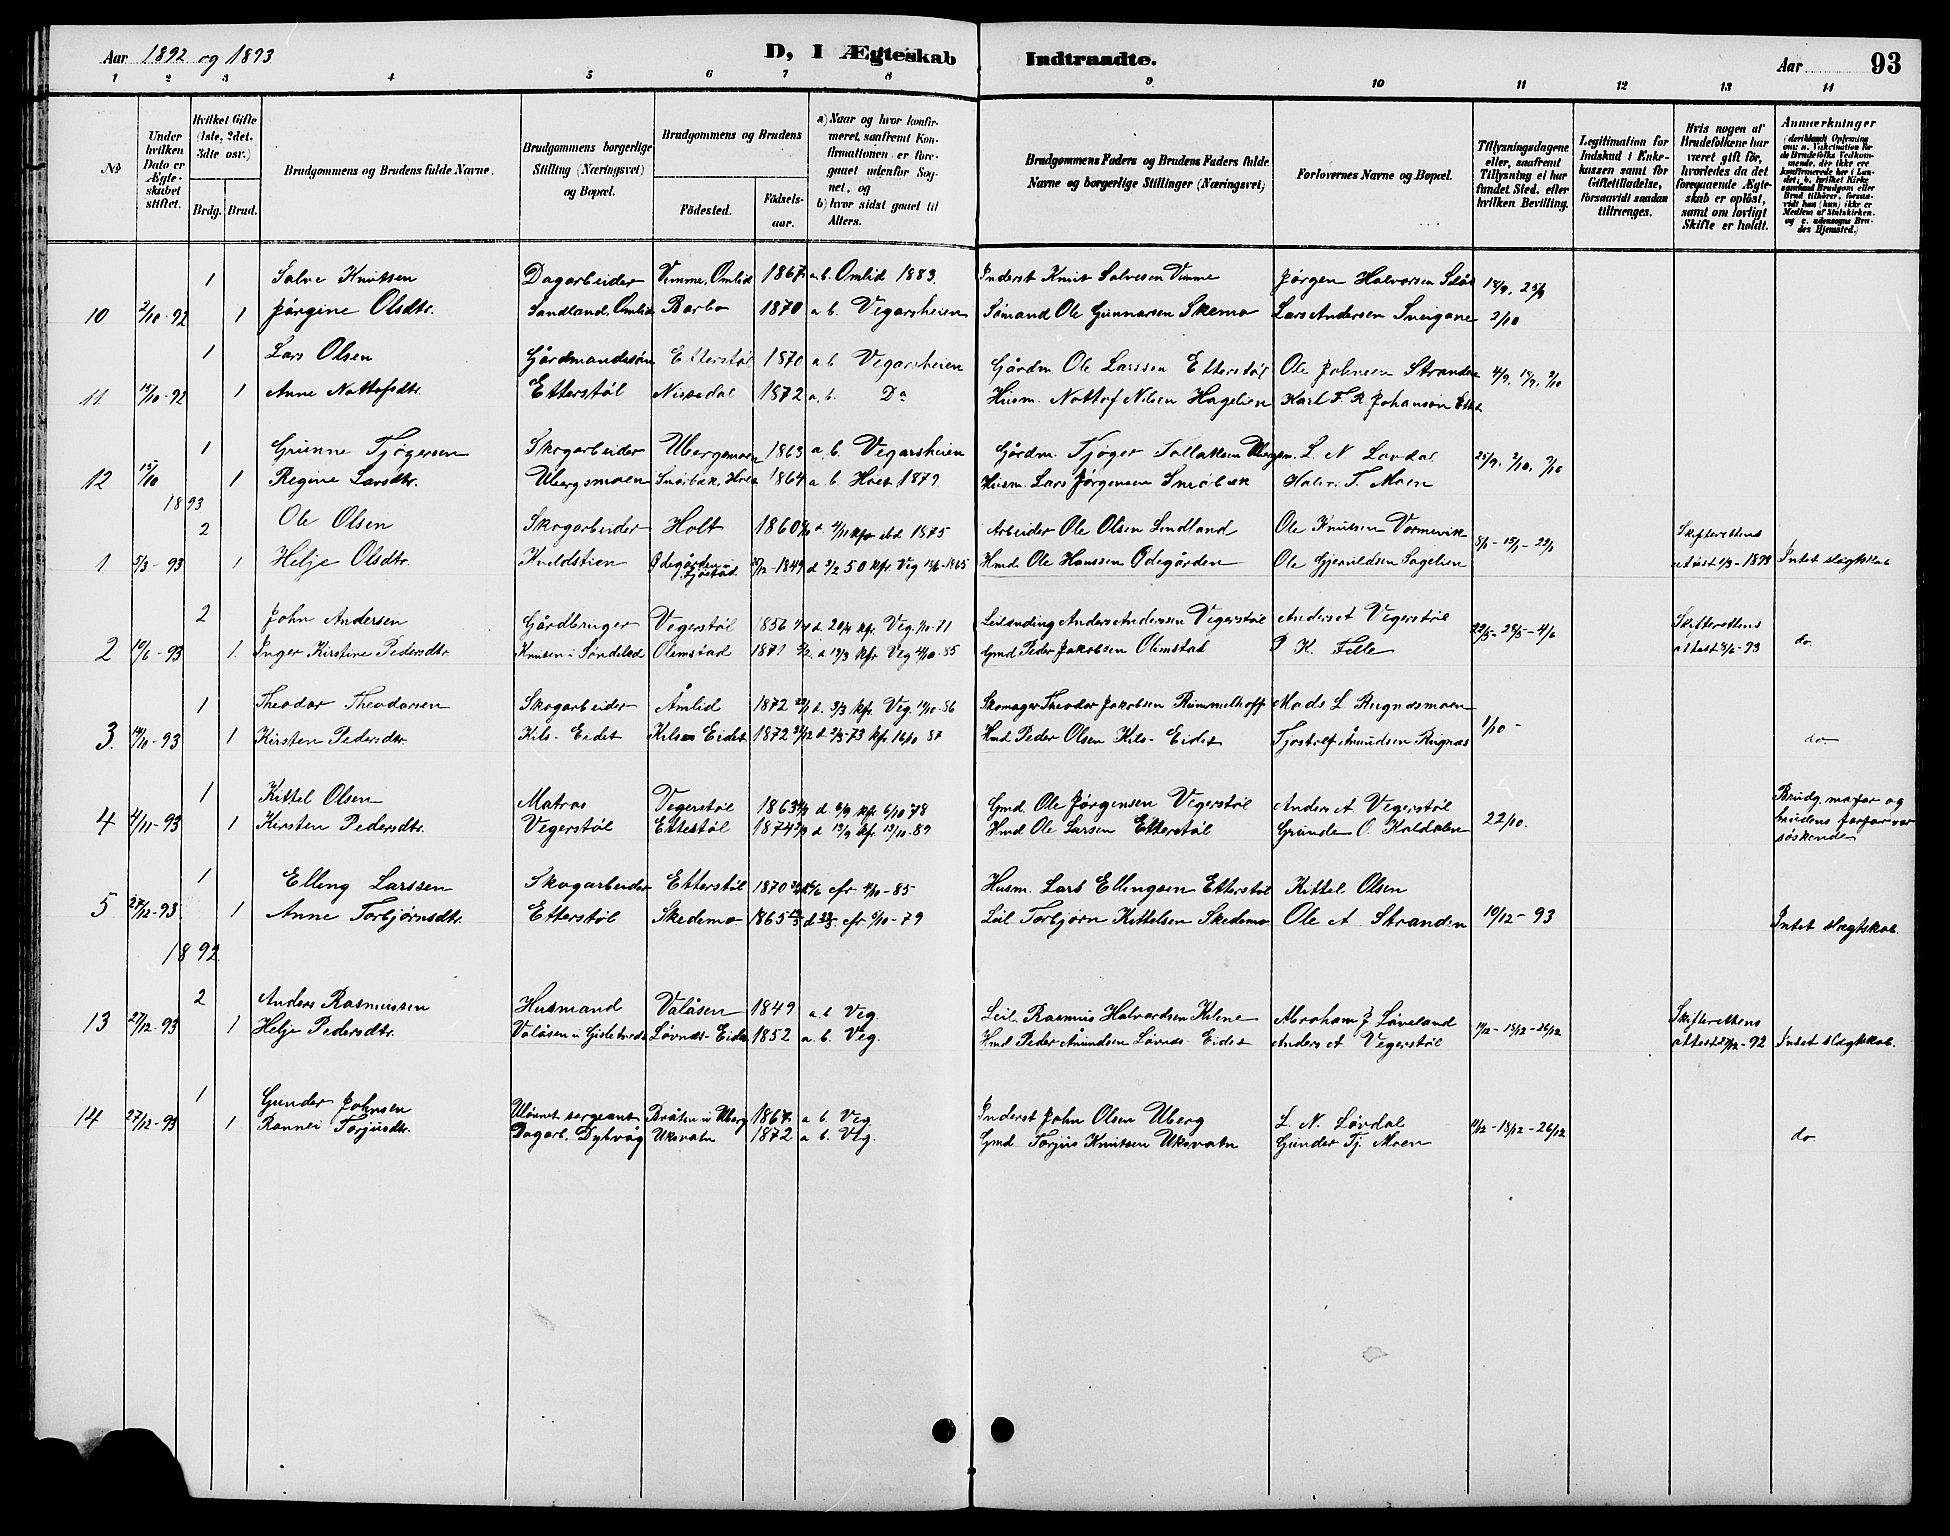 Aar 1892 og 1893
D, I Ægteskab
Indtraadte.
Aar
93
1 2 3 4 5 6 7 8
9 10 11 12 13 14
No
Under hvilken Dato er Ægteskabet stiftet.
Hvilket Gifte (1ste, 2det, 3die osv.)
Brdg. Brud.
Brudgommens og Brudens fulde Navne.
Brudgommens borgerlige Stilling (Næringsvei) og Bopæl.
Brudgommens og Brudens
Fødested.
Fødselsaar.
a) Naar og hvor konfirmeret, saafremt Konfirmationen er foregaaet udenfor Sognet, og
b) hvor sidst gaaet til Alters.
Brudgommens Faders og Brudens Faders fulde Navne og borgerlige Stillinger (Næringsvei)
Forlovernes Navne og Bopæl.
Tillysningsdagene eller, saafremt Tillysning ei har fundet Sted, efter hvilken Bevilling.
Legitimation for Indskud i Enkekassen samt for Giftetilladelse, forsaavidt saadan tiltrænges.
Hvis nogen af Brudefolkene har været gift før, hvorledes da det foregaaende Ægteskab er opløst, samt om lovligt Skifte er holdt.
Anmærkninger
1 Salve Knutsen Dagarbeider Vimme, Omlid 1867 a. b. Omlid 1883. Inderst Knut Salvesen Vimme Jørgen Halvorsen 25/9
10 2/10-92 1 Jørgine Olsdtr. Sandland, Omlid Barbo 1870 a. b. Vegarsheien Sømand Ole Gunnarsen Skemo Lars Andersen Sveigane 2/10
1 Lars Olsen Gårdmandssøn Etterstøl 1870 a. b. Vegarsheien Gårdm. Ole Larssen Etterstøl Ole Johnsen Stranden 4/9
11 15/10-92 1 Anne Nottofsdtr. Etterstøl Nissedal 1872 a. b. Do Husm. Nottof Nilsen Hagelien Karl F. R. Johansen
1 Gunne Tjøgersen Skogarbeider Ubergsmoen 1863 a. b. Vegarsheien Gårdm. Tjøger Tollaksen L. N. Løvdal 25/9, 2/10, 9/10
12 15/10 1 Regine Larsdtr. Ubergsmoen Snøibæk, Holt 1864 a. b. Holt 1879. Husm. Lars Jørgensen Snøibæk Halvor T. Moen
1893
2 Ole Olsen Skogarbeider Holt 1860 1875 Arbeider Ole Olsen Lindland Ole Knutsen Vormevik 8/1-15/1-22/1 Skifterettens
1 5/3-93 1 Helje Olsdtr. Kveldstien Ødegården i 1849 d. 2/2 50 kfr. Veg. 1865 Hmd. Ole Hanssen Ødegården Ole Gjeruldsen Sagelien attest 1/3-1893 Intet slægtskab
2 John Andersen Gårdbruger Vegerstøl 1856 d. 20/4 kfr. Veg. 1/10-71 Leilænding Anders Andersen Vegerstøl Anders A Vegerstøl 22/5-28/5-4/6 Skifterettens
2 10/6-93 1. Inger Kirstine Pedersdtr. Knutsen i Søndeled Olimstad 1871 d. 19/3 kfr Veg 4/10-85 Gmd. Peder Jakobsen Olimstad P. K. Felle attest 3/6-93 do.
1 Theodor Theodorsen Skogarbeider Åmlid 1872 d. 3/3 kfr. Veg. 10/10-86 Skomager Theodor Jakobsen Rummelhoff Mads L Rugnæsmoen
3. 14/10-93 1 Kirsten Pedersdtr. Kils-Eidet Kils Eidet 1872 kfr. 16/10 87 Hmd Peder Olsen Kils-Eidet Tjøstolf Amundsen Rugnæs 1/10 - do.
1 Kittel Olsen Matros Vegerstøl 1863 d. 6/9 kfr. 6/10 78 Gmd. Ole Jørgensen Vegerstøl Anders A Vegerstøl Brudg. morfar og
4 4/11-93 1 Kirsten Pedersdtr. Vegerstøl Etterstøl 1874 d 13/9 kfr. 13/10-89 Hmd Ole Larsen Etterstøl Grunde O. Kaldalen 22/10. brudens farfar var søskende
1 Elling Larssen Skogarbeider Etterstøl 1870 cfr 4/10-85 Husm. Lars Ellingsen Etterstøl Kittel Olsen
5 27/12-93 1 Anne Torbjørnsdtr. Etterstøl Skedemo 1865 cfr 5/10-79 Leil Torbjørn Kittelsen Skedemo Ole A. Stranden 10/12-93 Intet slægtskab.
1892
2 Anders Rasmussen Husmand Valåsen 1849 a. b. Veg. Leil. Rasmus Halvordsen Kilene Abraham J Løveland Skifterettens
13 27/12-93 1 Helje Pedersdtr. Valåsen u Løvnds-Eidet 1852 a. b. Veg. Hmd Peder Amundsen Løvnds-Eidet Anders A Vegerstøl 11/12-18/12-26/12 -92 Intet slægtskab.
1 Gunder Johnsen sergeant Bråten u Uberg 1867 a b. Veg Inderst John Olsen Uberg L. N. Løvdal
14 27/12-93 1 Rannei Torjusdtr. Dagarb. Dybvåg Uksvatn 1872 a. b. Veg. Gmd Torjus Knutsen Uksvatn Gunder Tj. Moen 11/12-18/12-26/12 do